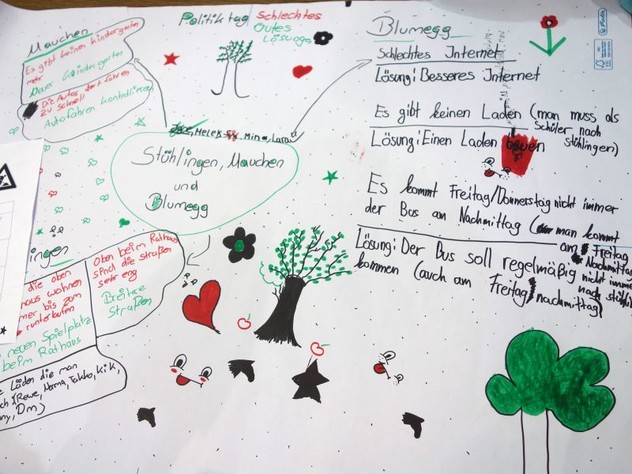 Politiktag
Schlechtes
Gutes
Lösungen
Mauchen
Es gibt keinen Kindergarten
mehr
Neuer Kindergarten
Die Autos dort fahren
zu schnell
Autofahren kontrollieren
Melek, Mina, Lara
Stühlingen, Mauchen
und
Blumegg
Blumegg
Schlechtes Internet
Lösung: Besseres Internet
Es gibt keinen Laden (man muss als
Schüler nach
Lösung: Einen Laden bauen stühlingen)
Es kommt Freitag/Donnerstag nicht immer
der Bus am Nachmittag (man kommt
am Freitag
Nachmittag
Lösung: Der Bus soll regelmäßig nicht immer
kommen (auch am Freitag nachmittag) nach stühl
lingen
die oben
haus wohnen
mer bis zum
runterlaufen
neuen Spielplatz
beim Rathaus
oben beim Rathaus
sind die straßen
sehr eng
Breitere
Straßen
Läden die man
(Rewe, Norma, Takko, Kik,
Dm)